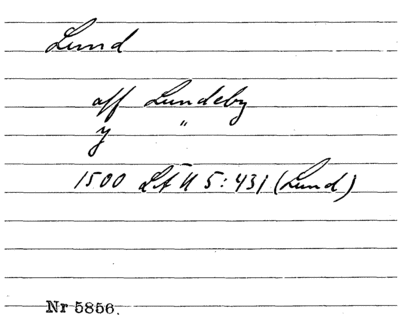 Lund
off Lundeby
y "
1500 LÄ N 5:431 (Lund)
Nr 5856.